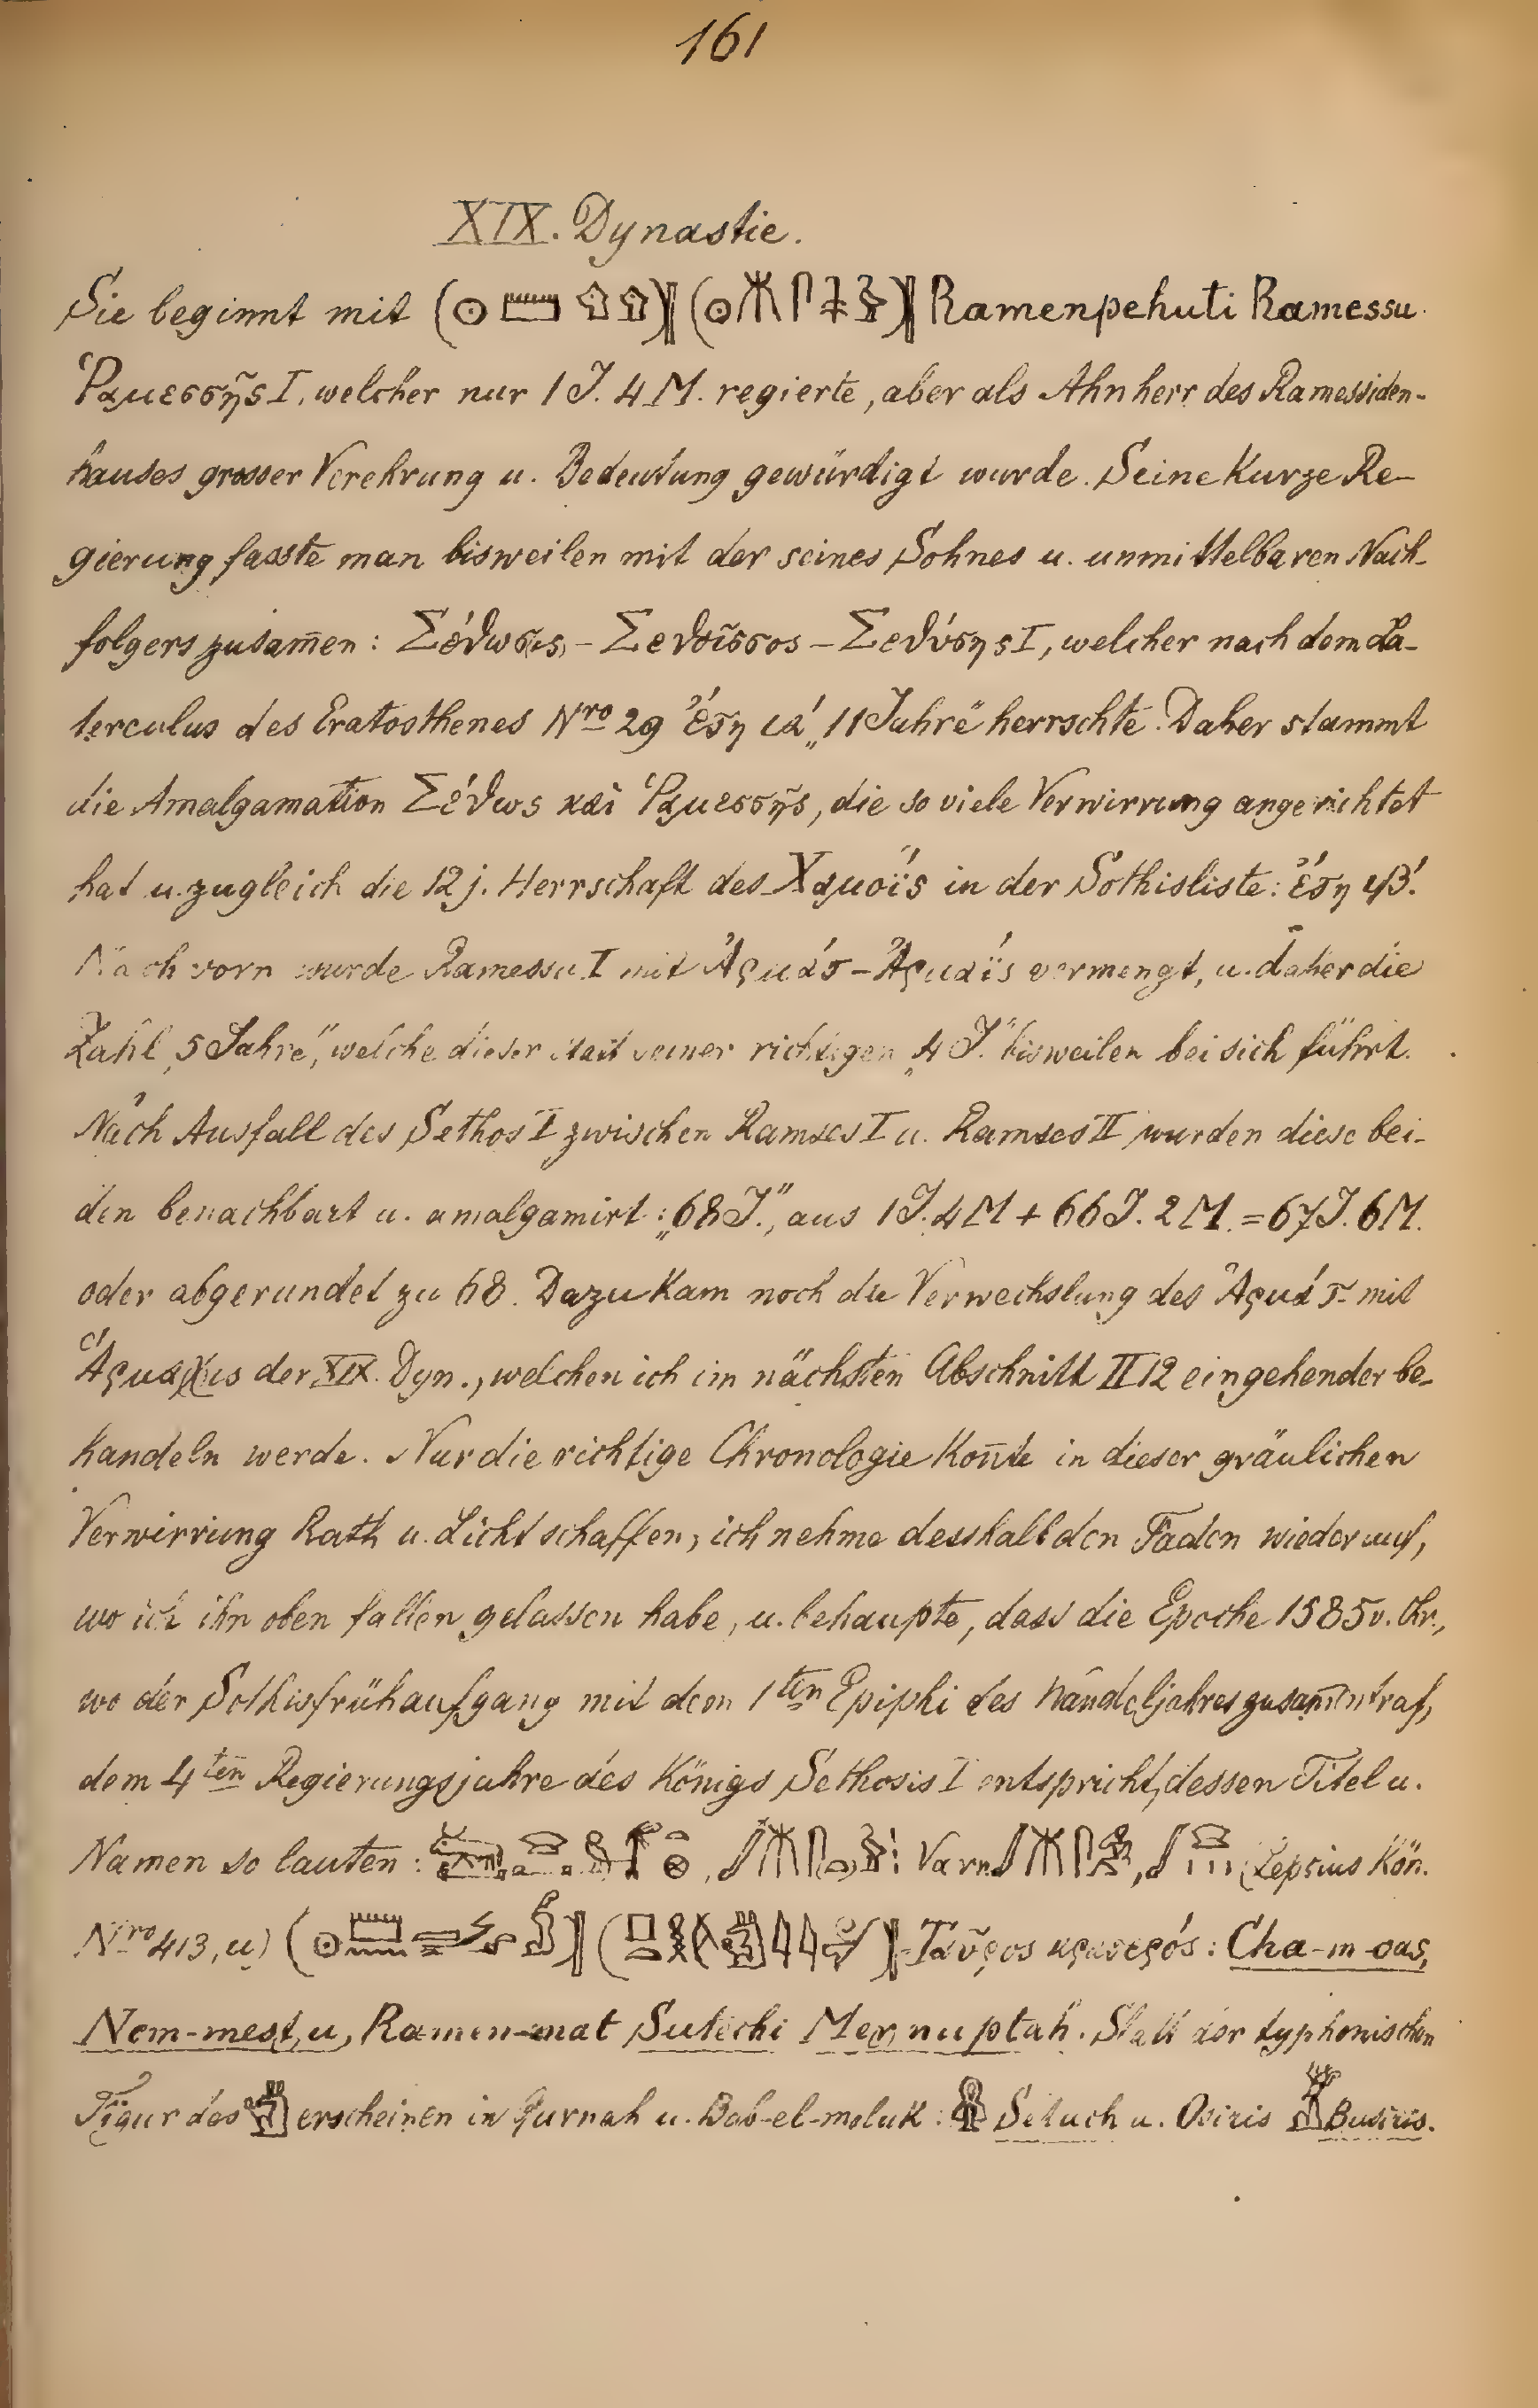 161
XIX. Dynastie.
Sie beginnt mit Ramenpehuti Ramessu
Ῥαμεσσῆς I, welcher nur 1 J. 4 M. regierte, aber als Ahnherr des Ramessiden-
hauses grosser Verehrung u. Bedeutung gewürdigt wurde. Seine kurze Re-
gierung fasste man bisweilen mit der seines Sohnes u. unmittelbaren Nach-
folgers zusam̄en: Σέθωσ(ις) – Σεθοῖσος – Σεθύσης I, welcher nach dem La-
terculus des Eratosthenes Nro 29 ἔτη ια´ „11 Jahre" herrschte. Daher stammt
die Amalgamation Σέθως καὶ Ῥαμεσσῆς, die so viele Verwirrung angerichtet
hat u. zugleich die 12 j. Herrschaft des Χαμοΐς in der Sothisliste: ἔτη ιβ´.
Nach vorn wurde Ramessu I mit Ἁρμάτ – Ἁρμαΐς vermengt, u. daher die
Zahl „5 Jahre", welche dieser statt seiner richtigen „4 J." bisweilen bei sich führt.
Nach Ausfall des Sethos I zwischen Ramses I u. Ramses II wurden diese bei-
den benachbart u. amalgamirt: „68 J.", aus 1 J. 4 M + 66 J. 2 M. = 67 J. 6 M.
oder abgerundet zu 68. Dazu kam noch die Verwechslung des Ἁρμάτ mit
der XIX. Dyn., welchen ich im nächsten Abschnitt II 12 eingehender be-
handeln werde. Nur die richtige Chronologie kon̄te in dieser gräulichen
Verwirrung Rath u. Licht schaffen; ich nehme desshalb den Faden wieder auf,
wo ich ihn oben fallen gelassen habe, u. behaupte, dass die Epoche 1585 v. Chr.,
wo der Sothisfrühaufgang mit dem 1ten Epiphi des Wandeljahres zusam̄entraf,
dem 4ten Regierungsjahre des Königs Sethosis I entspricht, dessen Titel u.
Namen so lauten: Var. (Lepsius Kön.
Nro 413, u) Ταῦρος κρατερός: Cha-m-oas,
Nem-mest, u, Ramen-mat Sutechi Mer nuptah. Statt der typhonischen
Figur des erscheinen in Qurnah u. Bab-el-moluk: Setuch u. Osiris Busiris.